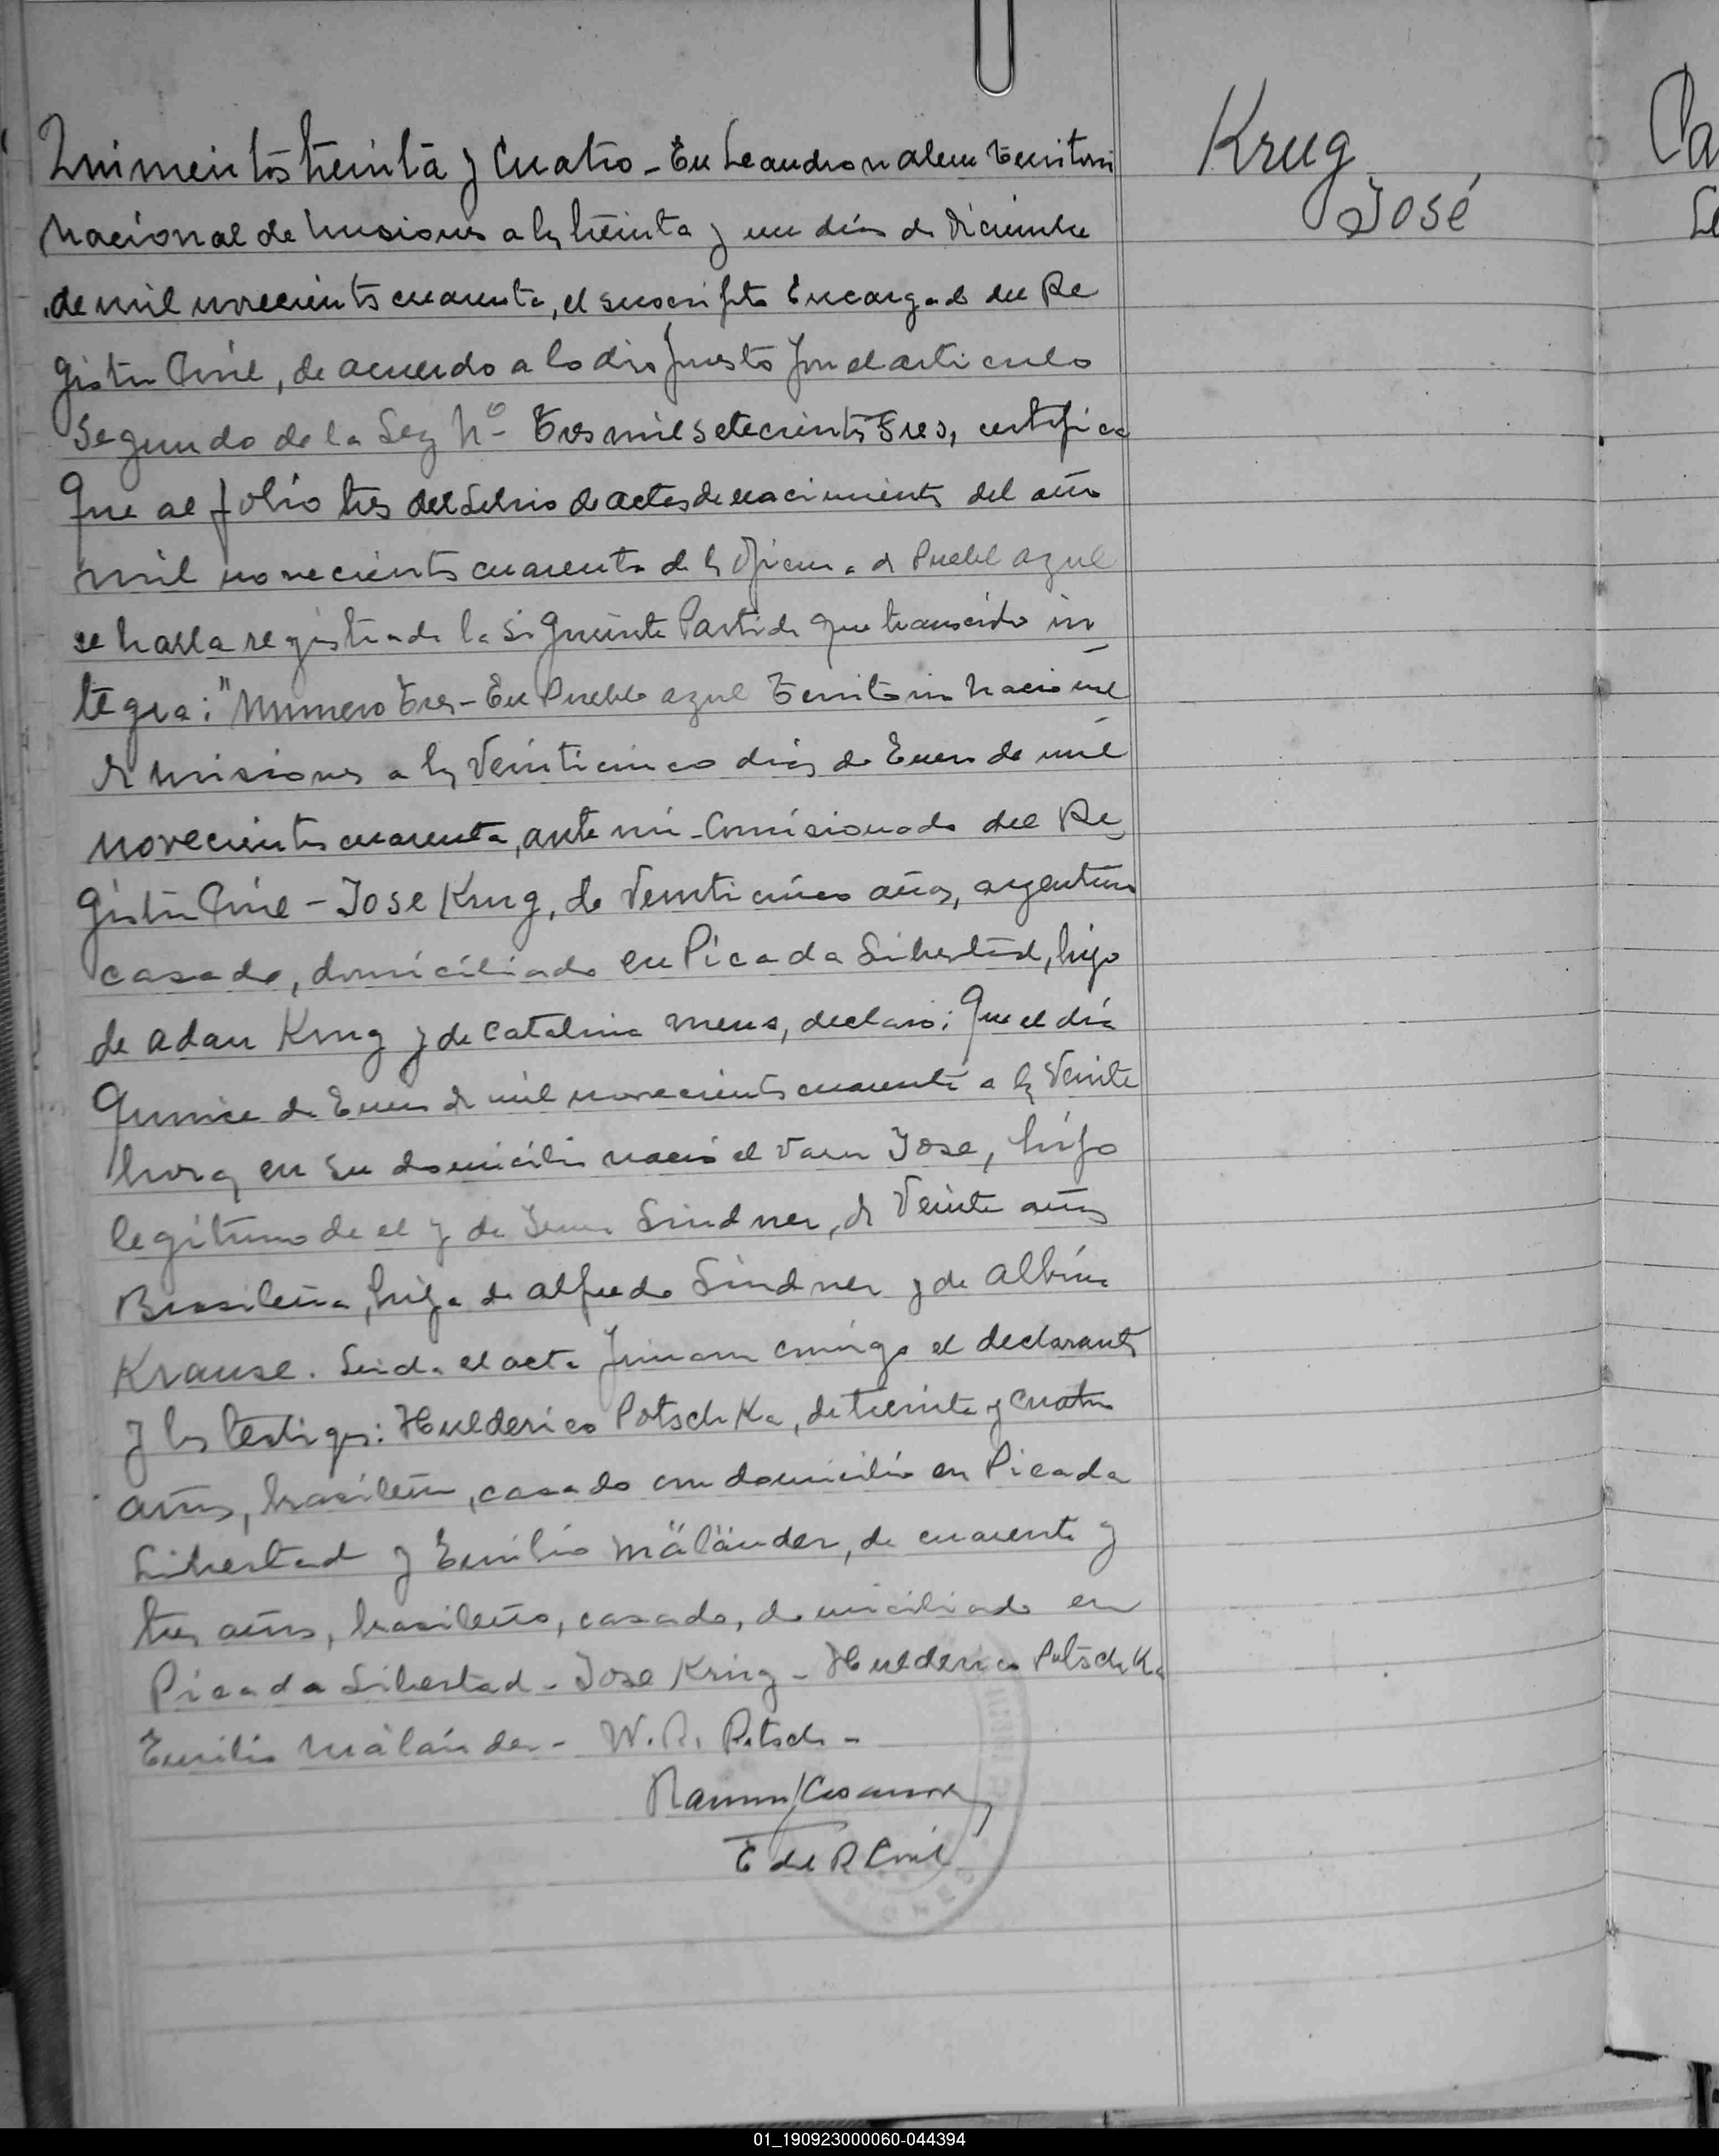 Quinientos treinta y Cuatro - En Leandro n alem Territori
Nacional de Misiones a los treinta y un dias de Diciembre
de mil novecientos cuarenta, el suscripto Encargado del Re
gistro Civil, de acuerdo a lo dispuesto por el articulo
Segundo de la Ley Nº Tres mil setecientos Tres, certifica
Que al folio tres del Libro de actas de nacimientos del año
mil novecientos cuarenta de la Oficina de Pueblo azul
se halla registrada la siguiente Partida que transcribo in
tegra: "Numero Tres - En Pueblo azul Territorio Nacional
de Misiones a los Veinticinco dias de Enero de mil
novecientos cuarenta, ante mi Comisionado del Re
gistro Civil - Jose Krug, de Veinticinco años, argentino
casado, domiciliado en Picada Libertad, hijo
de adan Krug y de Catalina Meus, declaro: Que el día
Quince de Enero de mil novecientos cuarenta a las Veinte
horas en su domicilio nació el Varon Jose, hijo
legítimo de el y de Lindner, de Veinte años
Brasileña, hija de alfredo Lindner y de albina
Krause. Leida el acta firmaron conmigo el declarante
y los testigos: Hulderico Potschka, de treinta y Cuatro
años, brasileño, casado con domicilio en Picada
Libertad y Emilio Mäländer, de cuarenta y
tres años, brasileño, casado, domiciliado en
Picada Libertad - Jose Krug - Hulderico Potschka
Emilio Mäländer - W. R. Potsch -
Ramon
E del R Civil
Krug
José
01_190923000060-044394